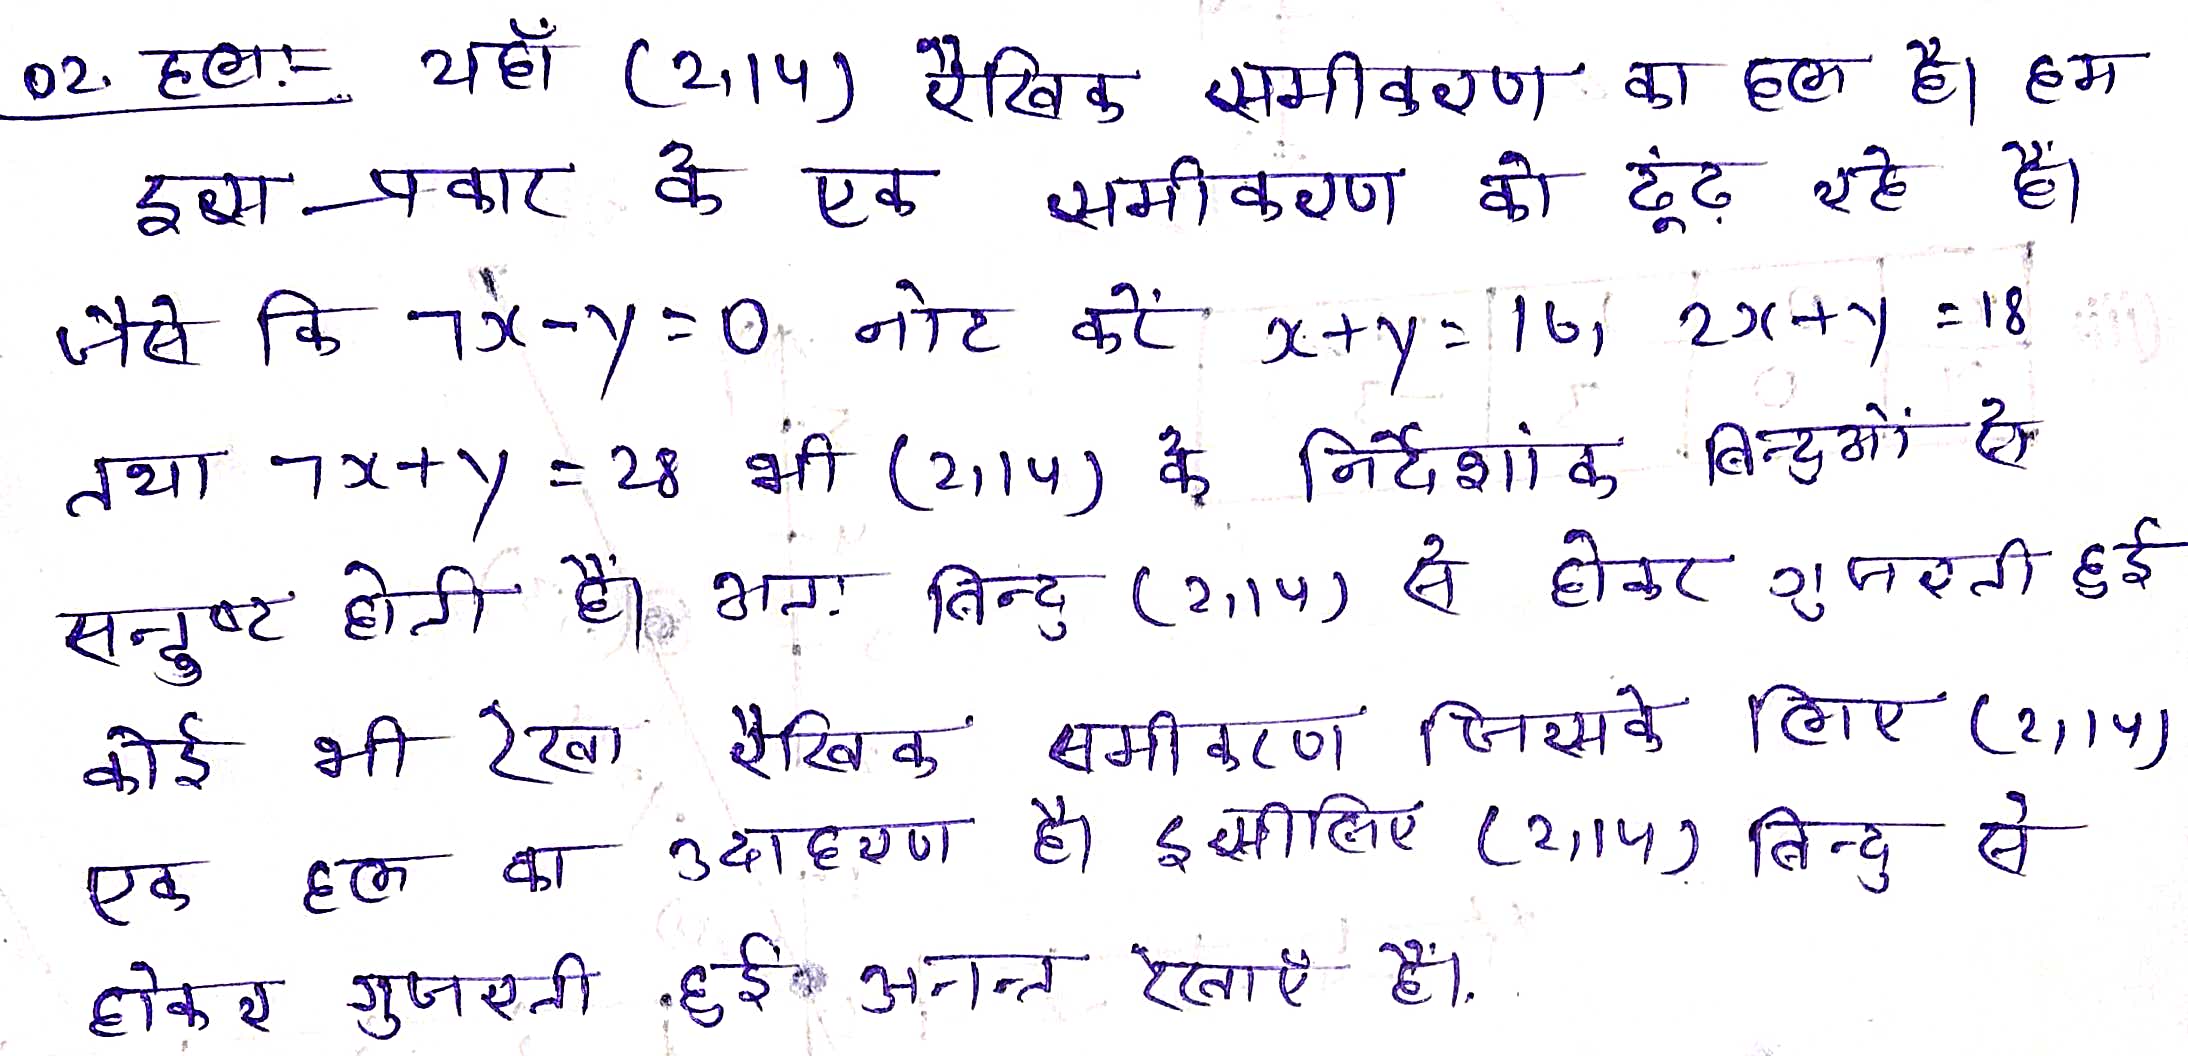 02. हल:- यहाँ (2,14) रैखिक समीकरण का हल है। हम
इस प्रकार के एक समीकरण को ढूंढ़ रहे हैं।
जैसे कि 7x-y=0 नोट करें x+y=16, 2x+y=18
तथा 7x+y=28 भी (2,14) के निर्देशांक बिन्दुओं से
सन्तुष्ट होती हैं। अतः बिन्दु (2,14) से होकर गुजरती हुई
कोई भी रेखा रैखिक समीकरण जिसके लिए (2,14)
एक हल का उदाहरण है। इसीलिए (2,14) बिन्दु से
होकर गुजरती हुई अनन्त रेखाएँ हैं।